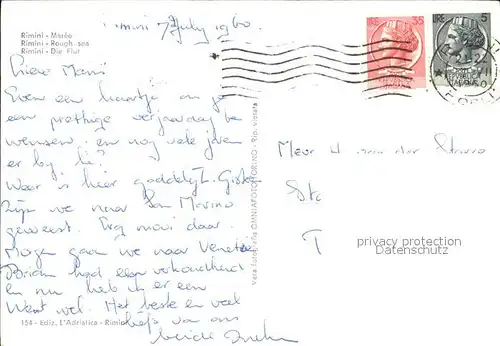 Rimini 7 July 1960.
Rimini - Marée
Rimini - Rough-sea
Rimini - Die Flut
Lieve
Even een kaartje om je
een prettige verjaardag te
wensen, en nog vele jaren
er bij he!
Weer is hier goddelijk. Gister
zijn we naar San Marino
geweest. Erg mooi daar.
Morgen gaan we naar Venetië
had een verkoudheid
en nu heb ik er een
Want wel. Het beste en veel
liefs van ons
beide
154 - Ediz. L'Adriatica - Rimini
Vera fotografia OMNIAFOTO TORINO - Rip. vietata
LIRE 35
LIRE 5
REPVBBLICA
ITALIANA
Mevr
privacy protection
Datenschutz